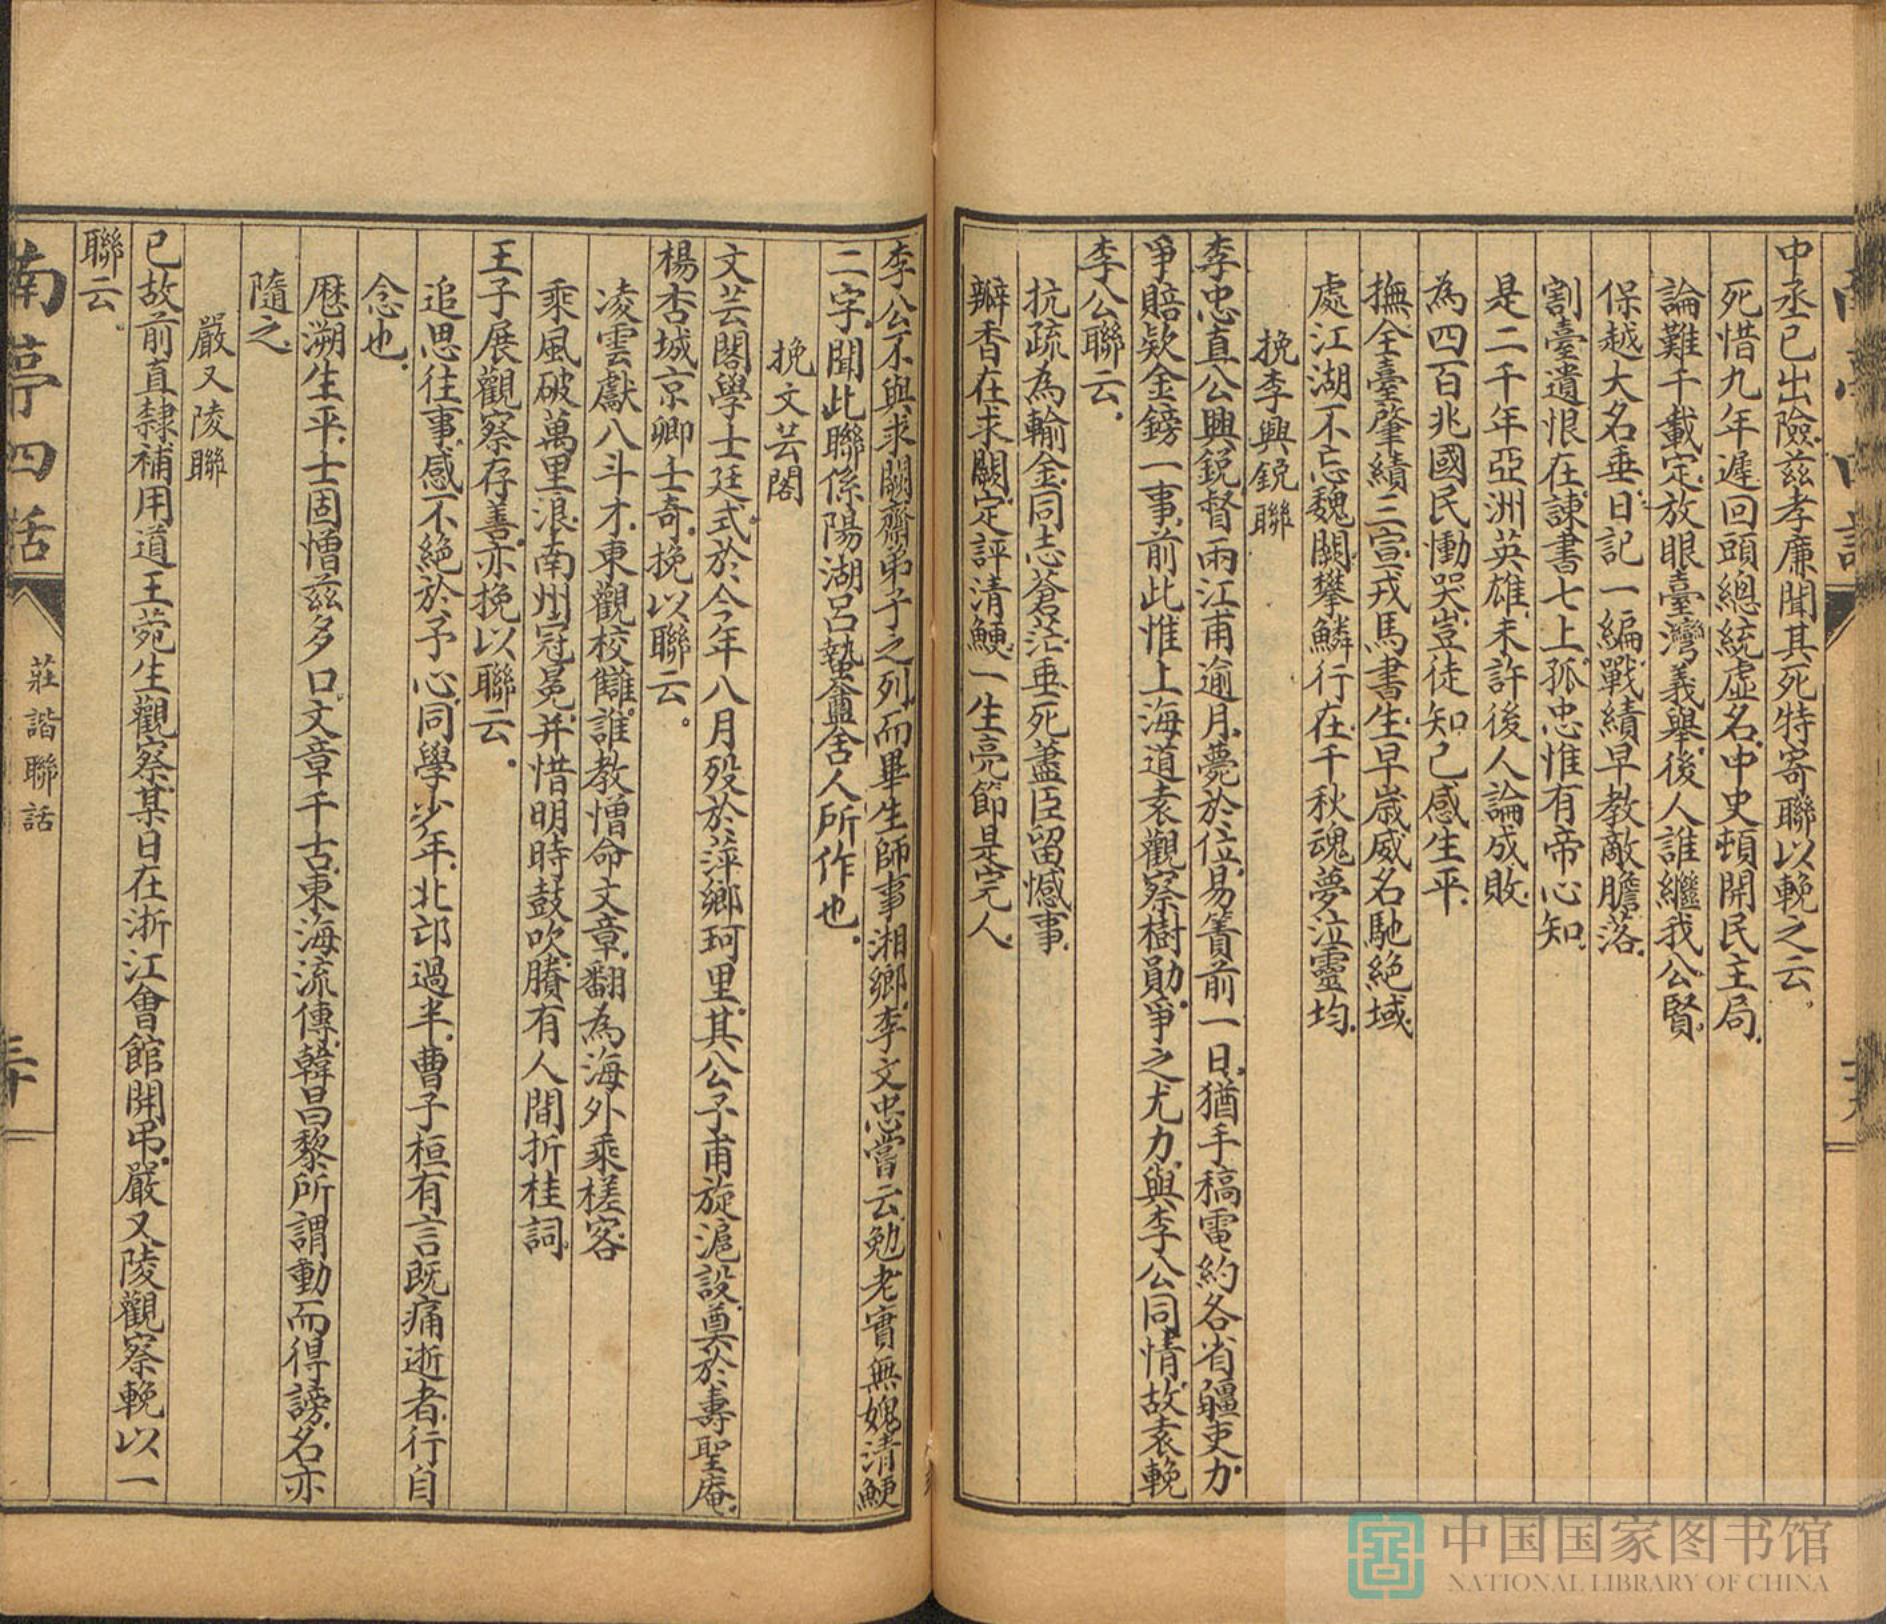 中丞已出險茲孝廉聞其死特寄聯以輓之云
死惜九年遲回頭總統虛名中史頓開民主局
論難千載定放眼臺灣義舉後人誰繼我公賢
保越大名垂日記一編戰績早教敵膽落
割臺遺恨在諫書七上孤忠惟有帝心知
是二千年亞洲英雄未許後人論成敗
為四百兆國民慟哭豈徒知己感生平
撫全臺肇績三宣戎馬書生早歲威名馳絕域
處江湖不忘魏闕攀鱗行在千秋魂夢泣靈均
挽李興銳聯
李忠真公興銳督兩江甫逾月薨於位易簀前一日猶手稿電約各省疆吏力
爭賠欵金鎊一事前此惟上海道袁觀察樹勛爭之尤力與李公同情故袁輓
李公聯云
抗疏為輸金同志蒼茫垂死藎臣留憾事
瓣香在求闕定評清鯁一生亮節是完人
李公不與求闕齋弟子之列而畢生師事湘鄉李文忠嘗云勉老實無媿清鯁
二字聞此聯係陽湖呂蟄盦舍人所作也
挽文芸閣
文芸閣學士廷式於今年八月歿於萍鄉珂里其公子甫旋滬設奠於壽聖庵
楊杏城京卿士奇挽以聯云
凌雲獻八斗才東觀校讎誰教憎命文章翻為海外乘槎客
乘風破萬里浪南州冠冕并惜明時鼓吹賸有人間折桂詞
王子展觀察存善亦挽以聯云
追思往事感不絕於予心同學少年北邙過半曹子桓有言既痛逝者行自
念也
歷溯生平士固憎茲多口文章千古東海流傳韓昌黎所謂動而得謗名亦
隨之
嚴又陵聯
已故前直隸補用道王菀生觀察某日在浙江會館開弔嚴又陵觀察輓以一
聯云
南亭四話
莊諧聯話
三十
中国国家图书馆
NATIONAL LIBRARY OF CHINA